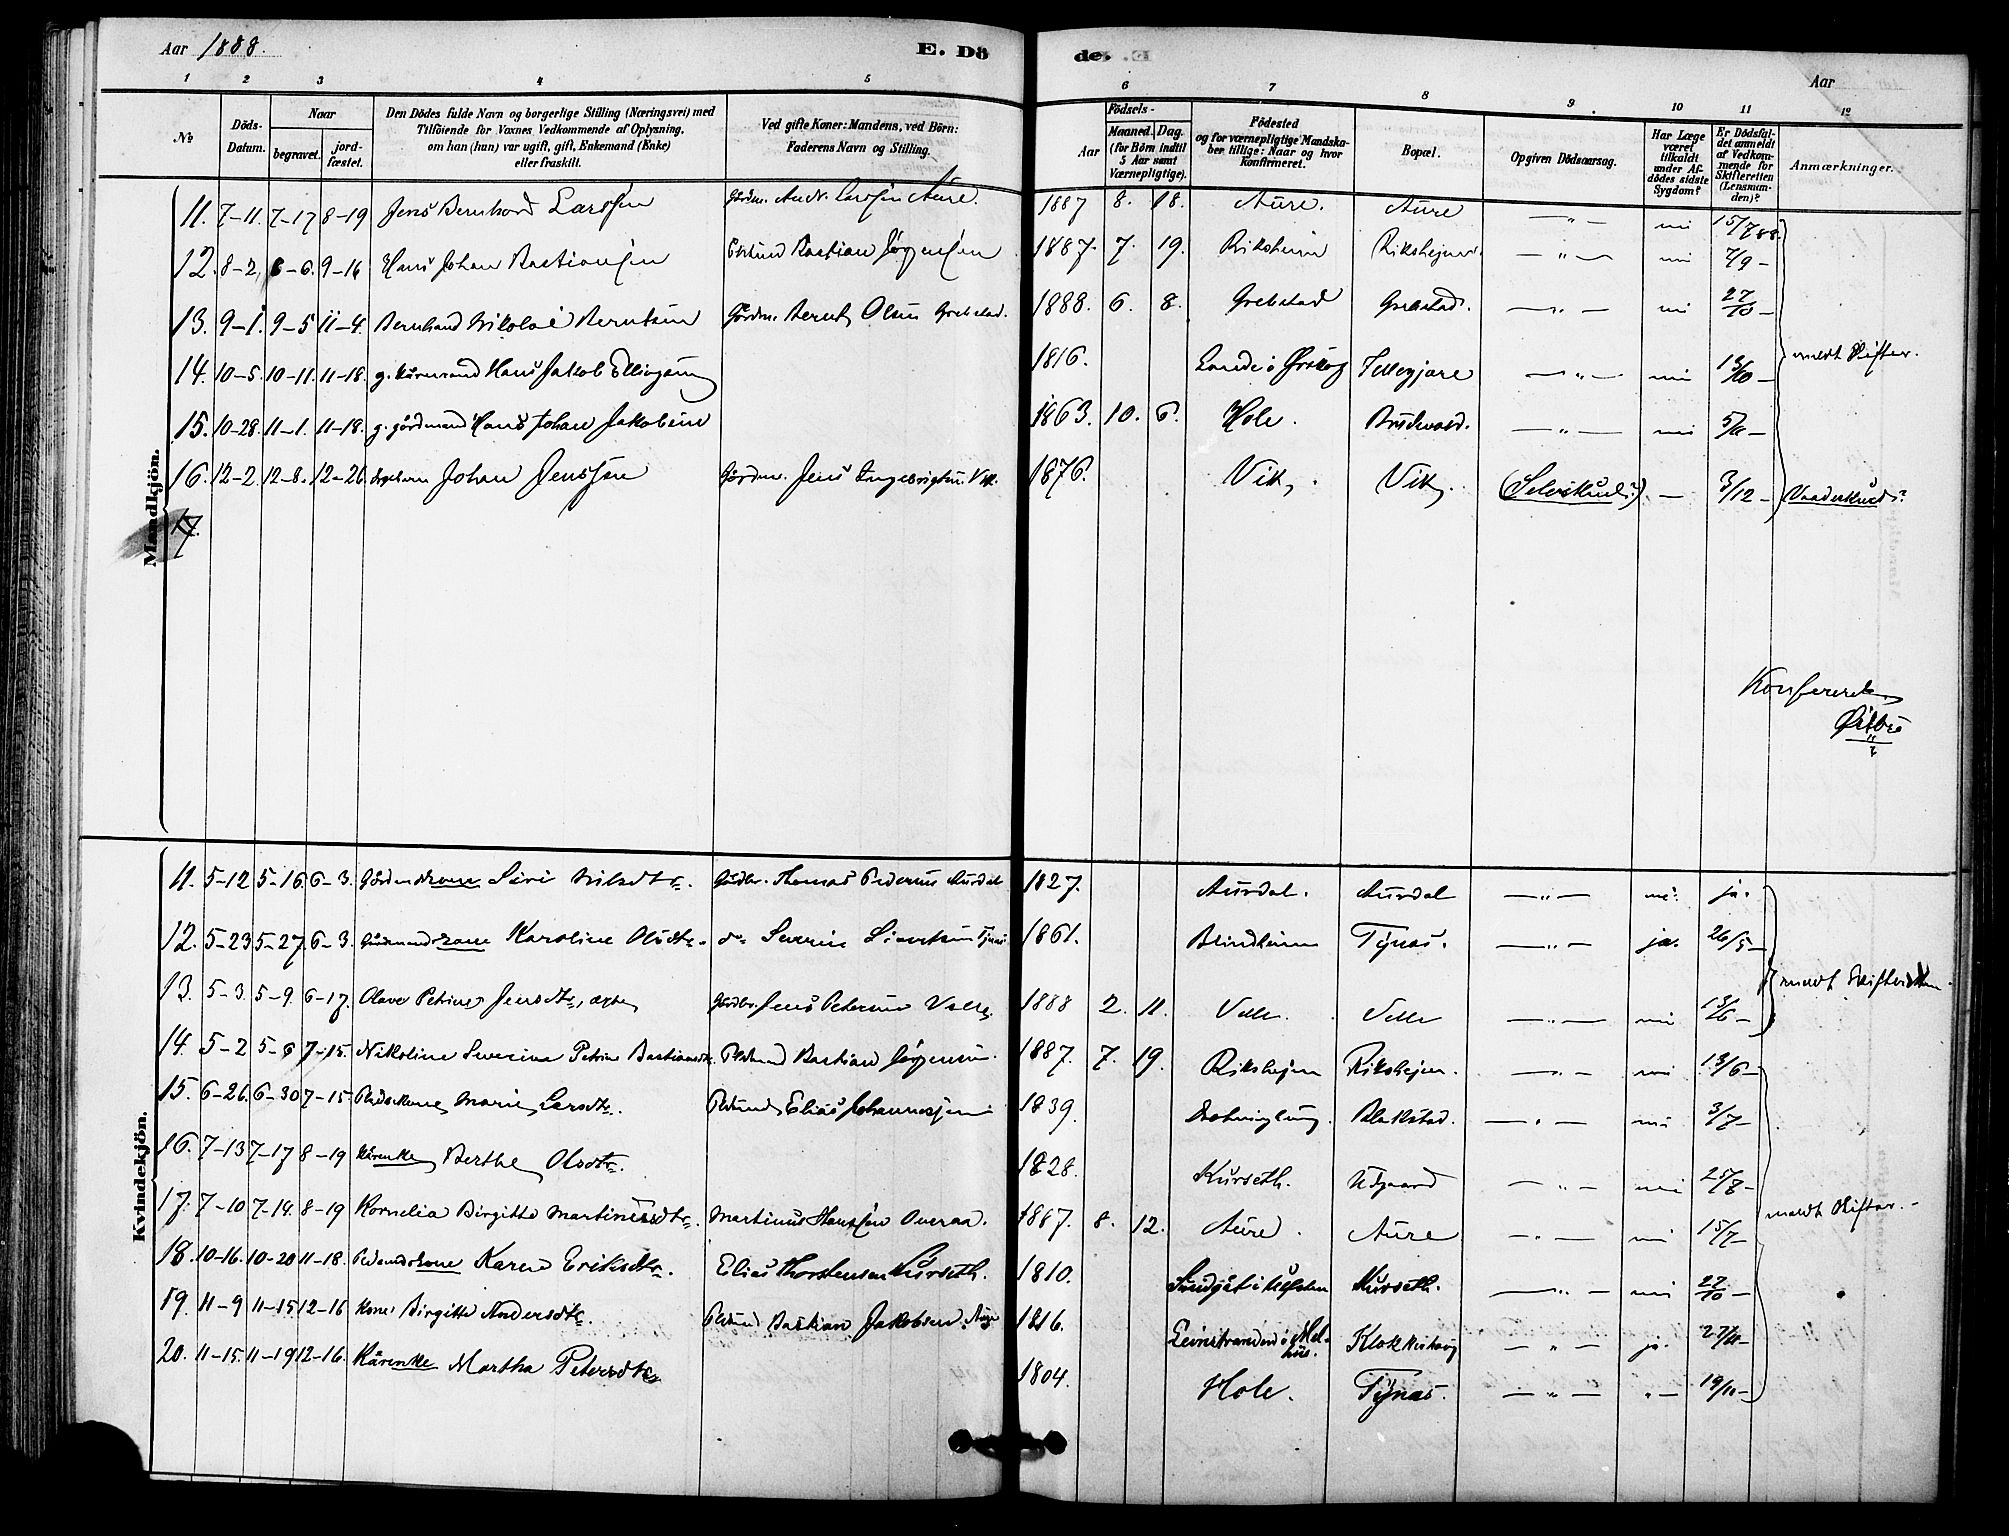 Aar 1888.
E. Dö
de.
Aar
1 2 3 4 5 6 7 8 9 10 11 12
No
Döds-Datum.
Naar
begravet.
jord-fæstet.
Den Dödes fulde Navn og borgerlige Stilling (Næringsvei) med
Tilföiende for Voxnes Vedkommende af Oplysning,
om han (hun) var ugift, gift, Enkemand (Enke)
eller fraskilt.
Ved gifte Koner: Mandens, ved Börn:
Faderens Navn og Stilling.
Födsels-
Aar
Maaned.
Dag.
(for Börn indtil
5 Aar samt
Værnepligtige).
Födested
og for værnepligtige Mandska-
ber tillige: Naar og hvor
Konfirmeret.
Bopæl.
Opgiven Dödsaarsag.
Har Læge
været
tilkaldt
under Af-
dödes sidste
Sygdom?
Er Dödsfal-
det anmeldt
af Vedkom-
mende for
Skifteretten
(Lensman-
den)?
Anmærkninger.
Mandkjön.
11. 7-11. 7-17 8-19 Jens Bernhard Larssen Gårdm. Andr. Larssen Aure. 1887 8. 18. Aure. Aure — „ — nei 15/7 88.
12. 8-2. 8-6. 9-16 Hans Johan Bastiansen Bastian Jørgensen 1887. 7. 19. Riksheim Rikshejm. — „ — nei 7/9 —
13. 9-1. 9-5 11-4. Bernhard Nikolai Berntsen Gårdm. Bernt Olsen Grebstad. 1888. 6. 8. Grebstad Grebstad. — „ — nei 27/10 —
14. 10-5. 10-11. 11-18. g. Hans Jakob Ellingsen 1816. Lande i Ørskog — „ — nei 13/10 — meldt Skifter.
15. 10-28. 11-1. 11-18. g. gårdmand Hans Johan Jakobsen 1863. 10. 6. Hole. — „ — nei 5/11 —
16. 12-2. 12-8. 12-26. Johan Jenssen Gårdm. Jens Ingebrigtsen Vik. 1876. Vik. Vik. — 3/12 —
17.
Konfereret.
Kvindekjön.
11. 5-12 5-16. 6-3. Gårdmdskone Siri Nilsdtr. Gårdbr. Thomas Pedersen Aurdal 1827. Aurdal. Aurdal — „ — nei. ja.
12. 5-23 5-27. 6-3. Gårdmandskone Karoline Olsdtr. do Severin Sivertsen Tynes 1861. Blindheim Tynes. — „ — ja. 26/5 —
13. 5-3. 5-9. 6-17. Olave Petrine Jensdtr, ægte Gårdbr. Jens Petersen Velle 1888 2. 11. Velle. Velle — „ — nei 13/6 —
14. 5-2 5-6 7-15. Nikoline Severina Petrine Bastiansdtr. Bastian Jørgensen. 1887. 7. 19. Rikshejm Rikshejm. — „ — nei 13/6 —
15. 6-26. 6-30 7-15 Marie Larsdtr. Elias Johannessen 1839. Blakstad. — „ — nei 3/7 —
16. 7-13 7-17 8-19 Kårenke Berthe Olsdtr. 1828. Kurseth. Utgaard — „ — nei 25/7 —
17. 7-10 7-14. 8-19 Kornelia Birgitte Martinusdtr. Martinus Hanssen Overaa. 1887. 8. 12. Aure. Aure — „ — nei 15/7 — meldt Skifter. —
18. 10-16. 10-20 11-18. Karen Eriksdtr. Elias Thorstensen Kurseth. 1810. Kurseth. — „ — nei 27/10 —
19. 11-9 11-15 12-16 Kone Birgitte Andersdtr. Bastian Jakobsen 1816. Leinstranden i Mel-hus. — „ — ja. 27/11 —
20. 11-15. 11-19 12-16. Kårenke Martha Petersdtr 1804. Hole. Tynes. — „ — „ — 19/11 —